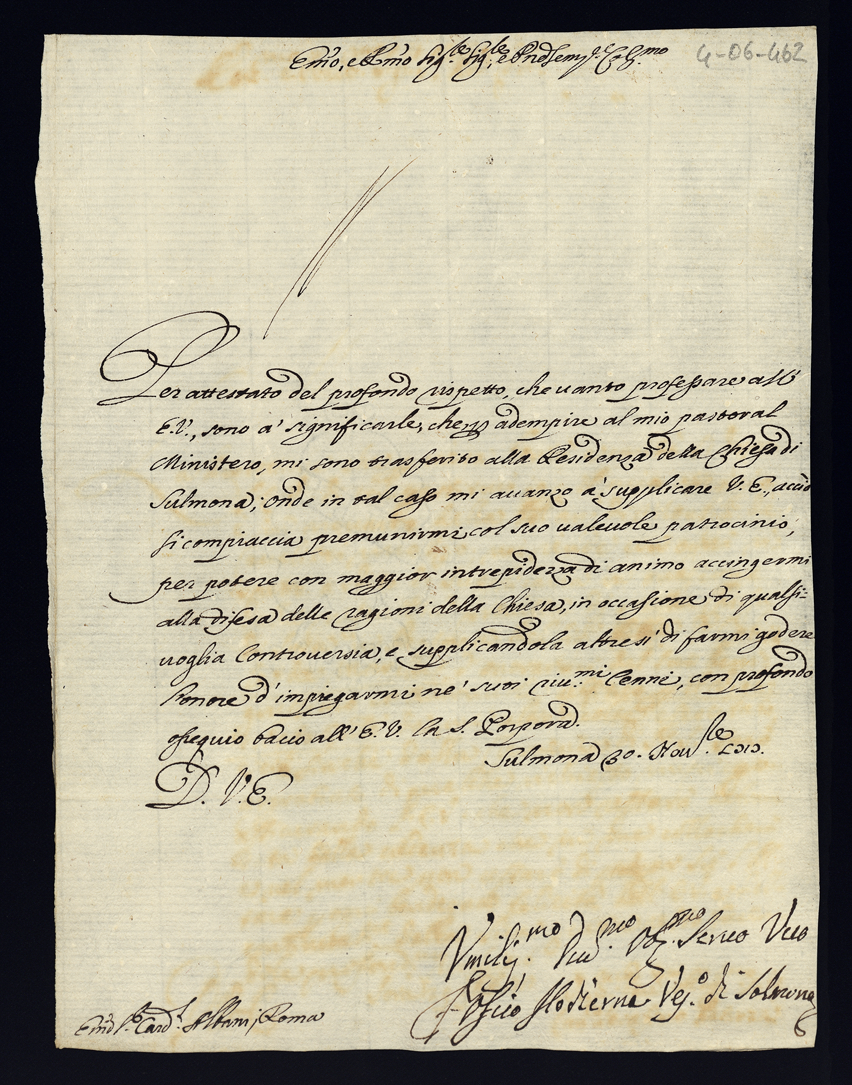 Em̃o, e Rm̃o Sig.re Sig.re, e Pñe Semp.e Col.mo
4-06-462
Per attestato del profondo rispetto, che vanto professare all'
E.V., sono à significarle, che p adempire al mio pastoral
Ministero, mi sono trasferito alla Residenza della Chiesa di
Sulmona; onde in tal caso mi avanzo à supplicare V.E., acciò
si compiaccia premunirmi col suo valevole patrocinio,
per potere con maggior intrepidezza di animo accingermi
alla difesa delle ragioni della Chiesa, in occasione di qualsi-
voglia Controversia, e supplicandola altresì di farmi godere
l'onore d'impiegarmi ne' suoi riu.mi Cenni, con profondo
ossequio bacio all'E.V. la S. Porpora.
Sulmona 30. Nov.
D. V.E.
Umiliss.mo Serv.o Vero
Vesc.o di Solmona
Em̃o S.r Card.l Albani, Roma